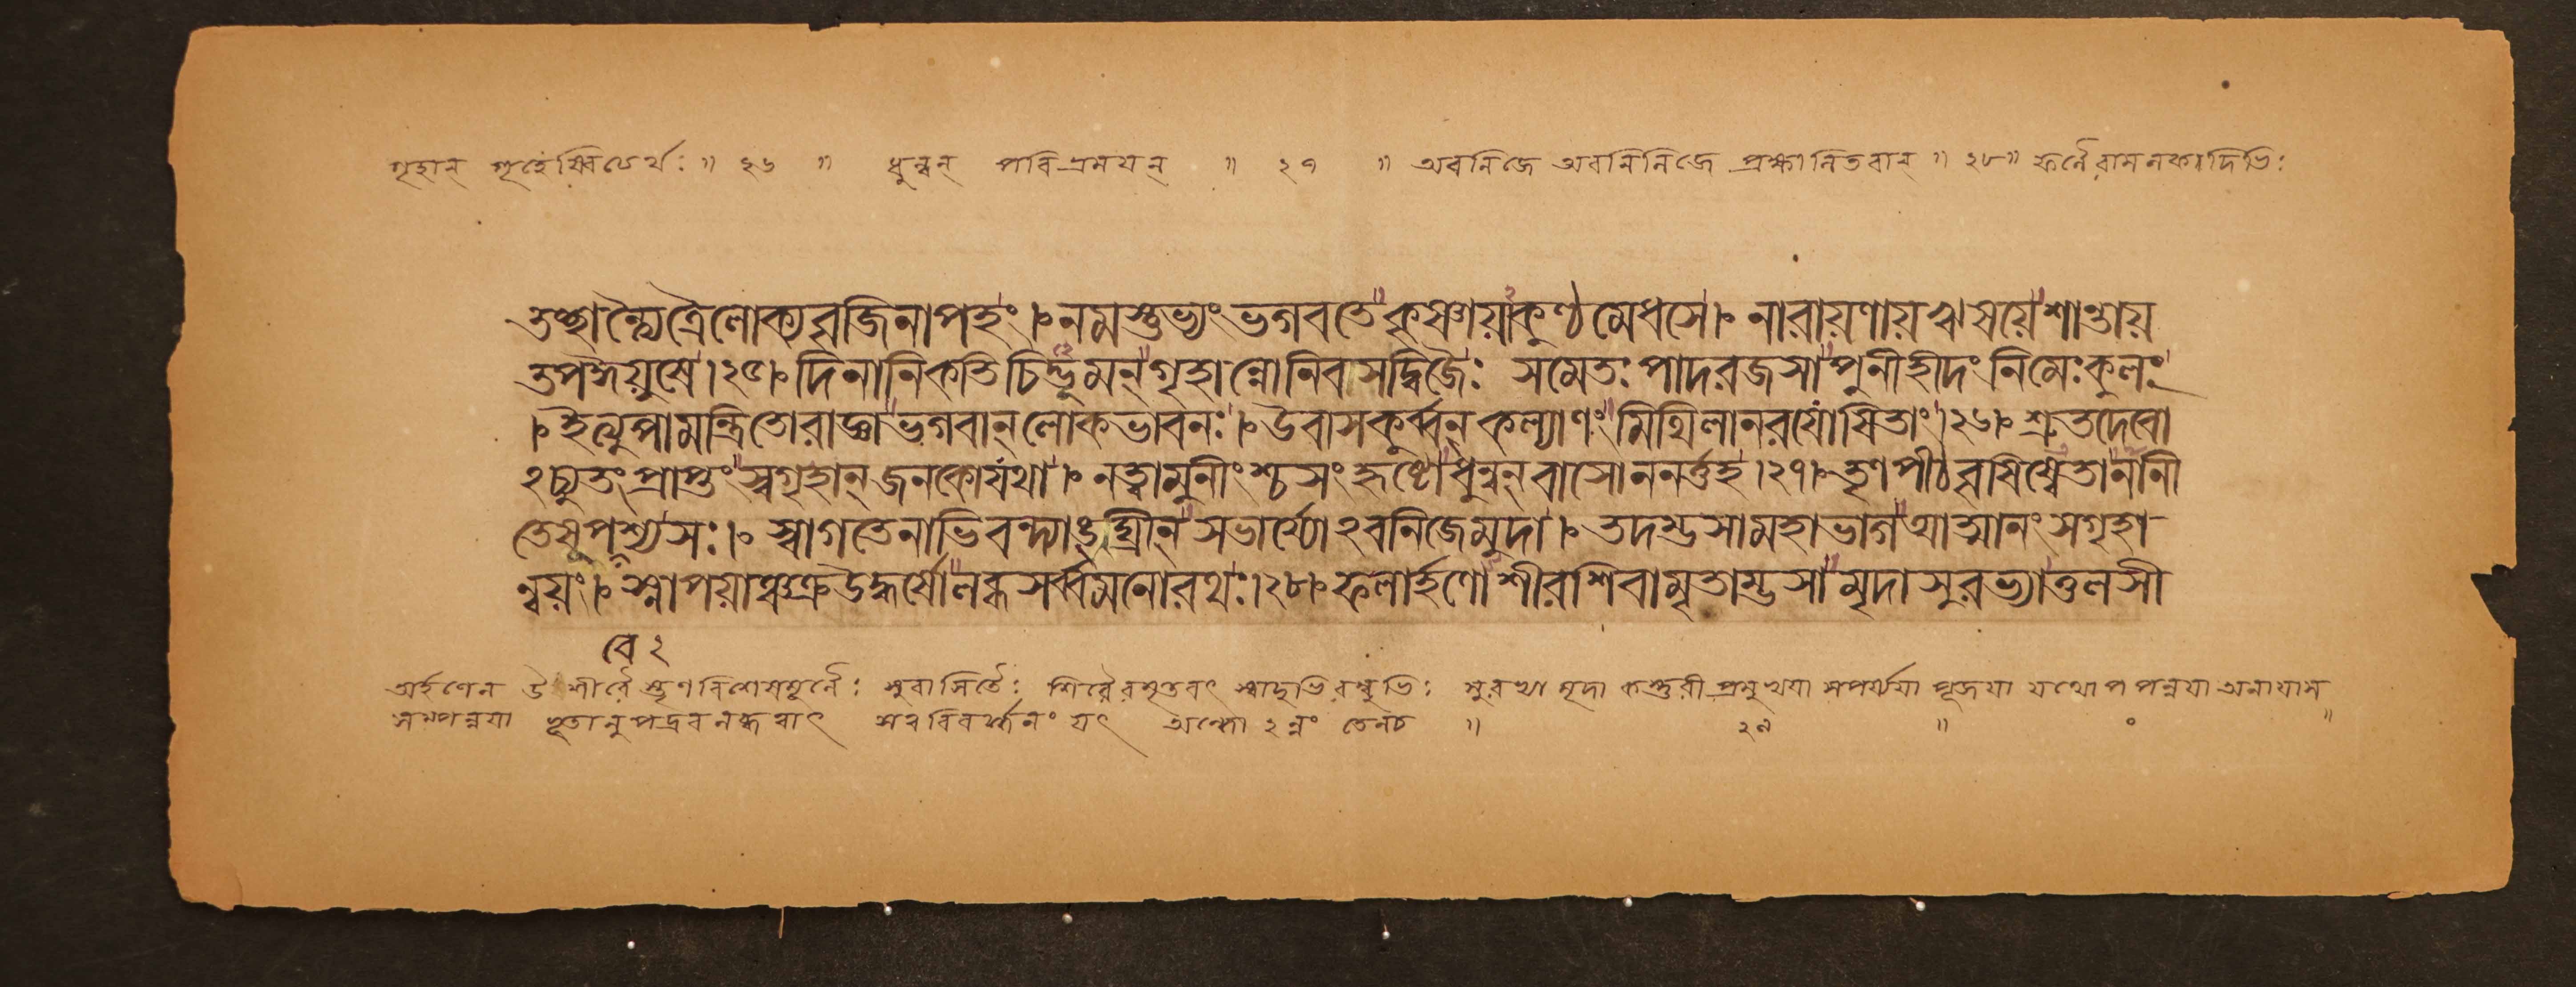 গৃহান্ গৃহেষ্বিত্যর্থঃ ॥ ২৬ ॥ ধুন্বন্ পরিভ্রময়ন্ ॥ ২৭ ॥ অবনিজে অবনিনিজে প্রক্ষালিতবান্ ॥ ২৮ ॥ ফলৈরামলকাদিভিঃ
তচ্ছান্ত্যৈ ত্রৈলোক্যবৃজিনাপহং । নমস্তুভ্যং ভগবতে কৃষ্ণায়াকুণ্ঠমেধসে । নারায়ণায় ঋষয়ে শান্তায়
তপঈয়ুষে ।২৫। দিনানি কতিচিদ্ভূমন্ গৃহান্নো নিবসদ্বিজৈঃ সমেতঃ পাদরজসা পুনীহীদং নিমেঃ কুলং
। ইত্যুপামন্ত্রিতো রাজ্ঞা ভগবান্ লোকভাবনঃ । উবাস কুর্ব্বন্ কল্যাণং মিথিলানরযোষিতাং ।২৬। শ্রুতদেবো
ঽচ্যুতং প্রাপ্তং স্বগৃহান্ জনকো যথা । নত্বা মুনীংশ্চ সংহৃষ্টো ধুন্বন্ বাসো ননর্ত্তহ ।২৭। তৃণপীঠবৃষিষ্বেতানানী
তেষূপবেশ্য সঃ । স্বাগতেনাভিবন্দ্যাঙ্ঘ্রীন্ সভার্য্যোঽবনিজে মুদা । তদম্ভসা মহাভাগ আত্মানং সগৃহা
ন্বয়ং । স্নাপয়াঞ্চক্র উদ্ধর্ষো লব্ধসর্ব্বমনোরথঃ ।২৮। ফলার্হণোশীরশিবামৃতাম্ভসা মৃদা সুরভ্যা তুলসী
বে ২
অর্হণেন উশীরৈ স্তৃণবিশেষমূলৈঃ সুবাসিতৈঃ শিবৈরমৃতবৎ স্বাদুভিরম্বুভিঃ সুরভ্যা মৃদা কস্তুরীপ্রমুখয়া সপর্য্যয়া পূজয়া যথোপপন্নয়া অনায়াস
সম্পন্নয়া ভূতানুপদ্রবলব্ধবাৎ সত্ববিবর্দ্ধনং যৎ অন্ধোঽন্নং তেনচ ॥ ২৯ ॥